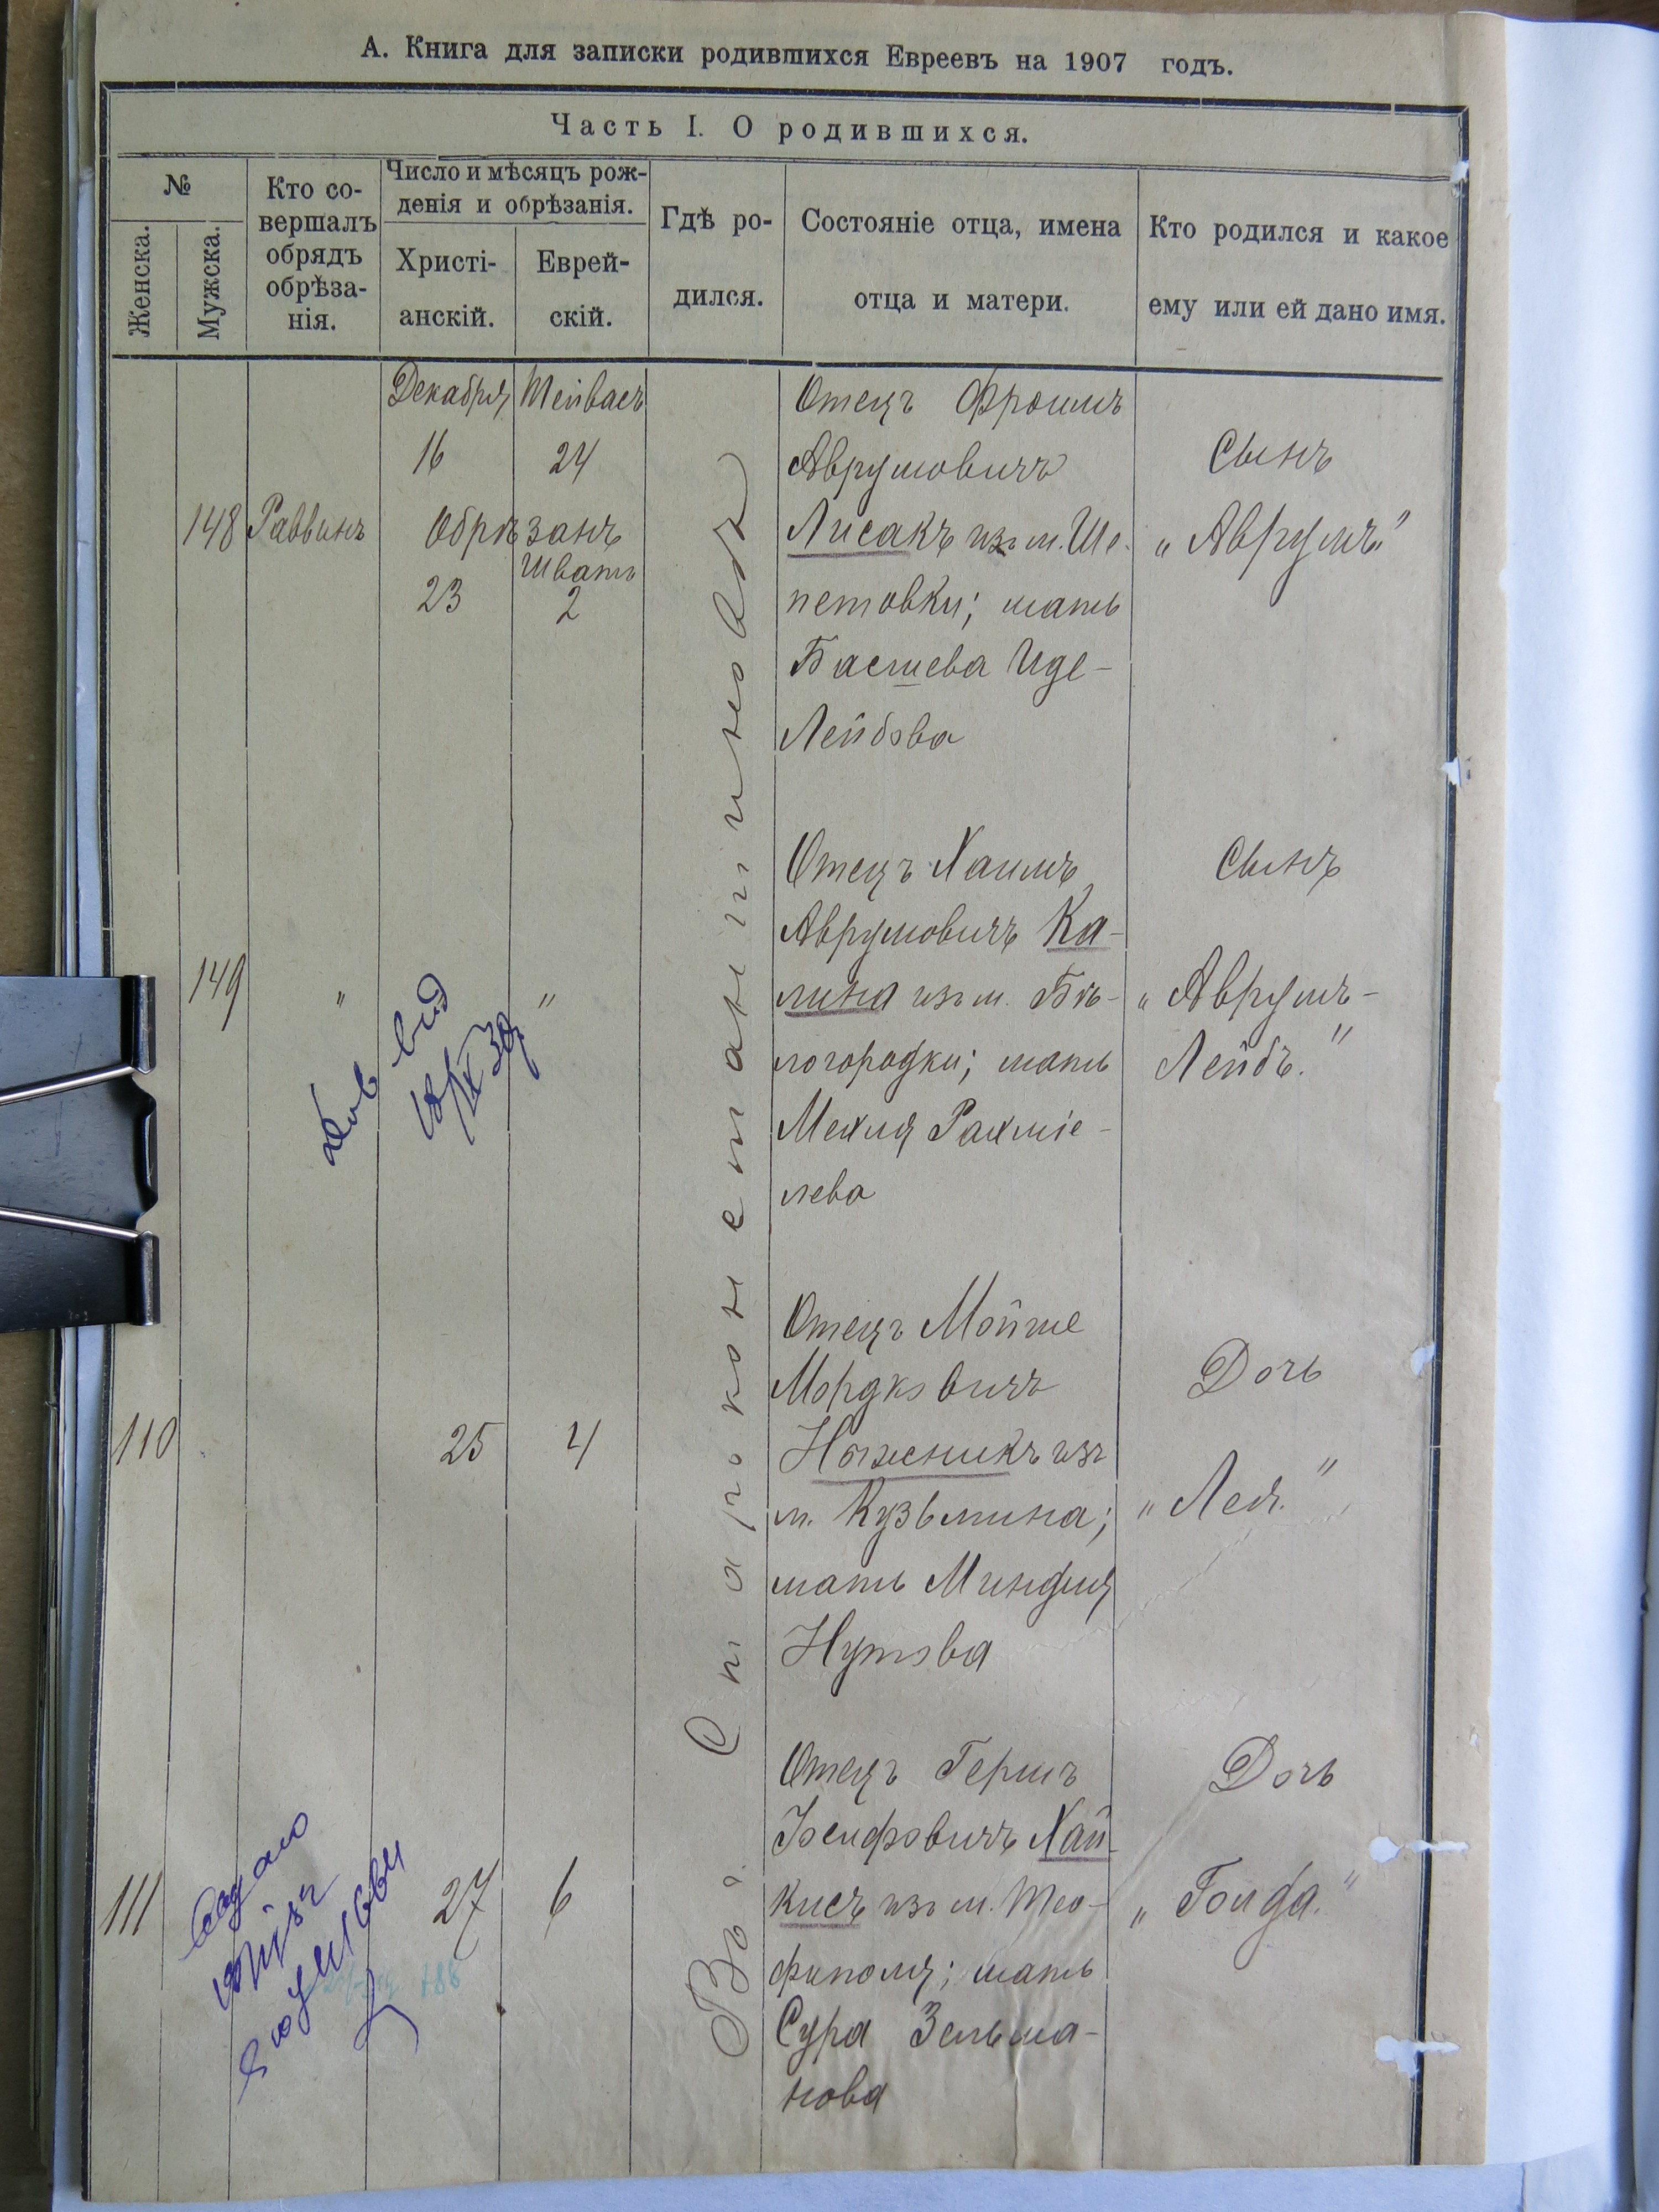 А. Книга для записки родившихся Евреевъ на 1907 годъ.
Часть I. О родившихся.
№
Женска.
Мужска.
Кто со-
вершалъ
обрядъ
обрѣза-
нія.
Число и мѣсяцъ рож-
денія и обрѣзанія.
Христі-
анскій.
Еврей-
скій.
Гдѣ ро-
дился.
Состояніе отца, имена
отца и матери.
Кто родился и какое
ему или ей дано имя.
Въ Староконстантиновѣ
Декабря Тейвасъ
16 24
148 Раввинъ Обрѣзанъ
Шватъ
23 2
Отецъ Фроимъ
Аврумовичъ
Лисакъ изъ м. Ше-
петовки; мать
Басшева Иде-
Лейбова
Сынъ
„Аврумъ"
149 " "
Отецъ Хаимъ
Аврумовичъ Ка-
лина изъ м. Бѣ-
логородки; мать
Мехля Рахміе-
лева
Сынъ
„Аврумъ-
Лейбъ."
110 25 4
Отецъ Мойше
Мордковичъ
Ножникъ изъ
м. Кузьмина;
мать Миндля
Нутова
Дочь
„Лея."
111 27 6
Отецъ Гершъ
Іосифовичъ Хай-
кисъ изъ м. Тео-
фиполя; мать
Сура Зельма-
нова
Дочь
„Голда."